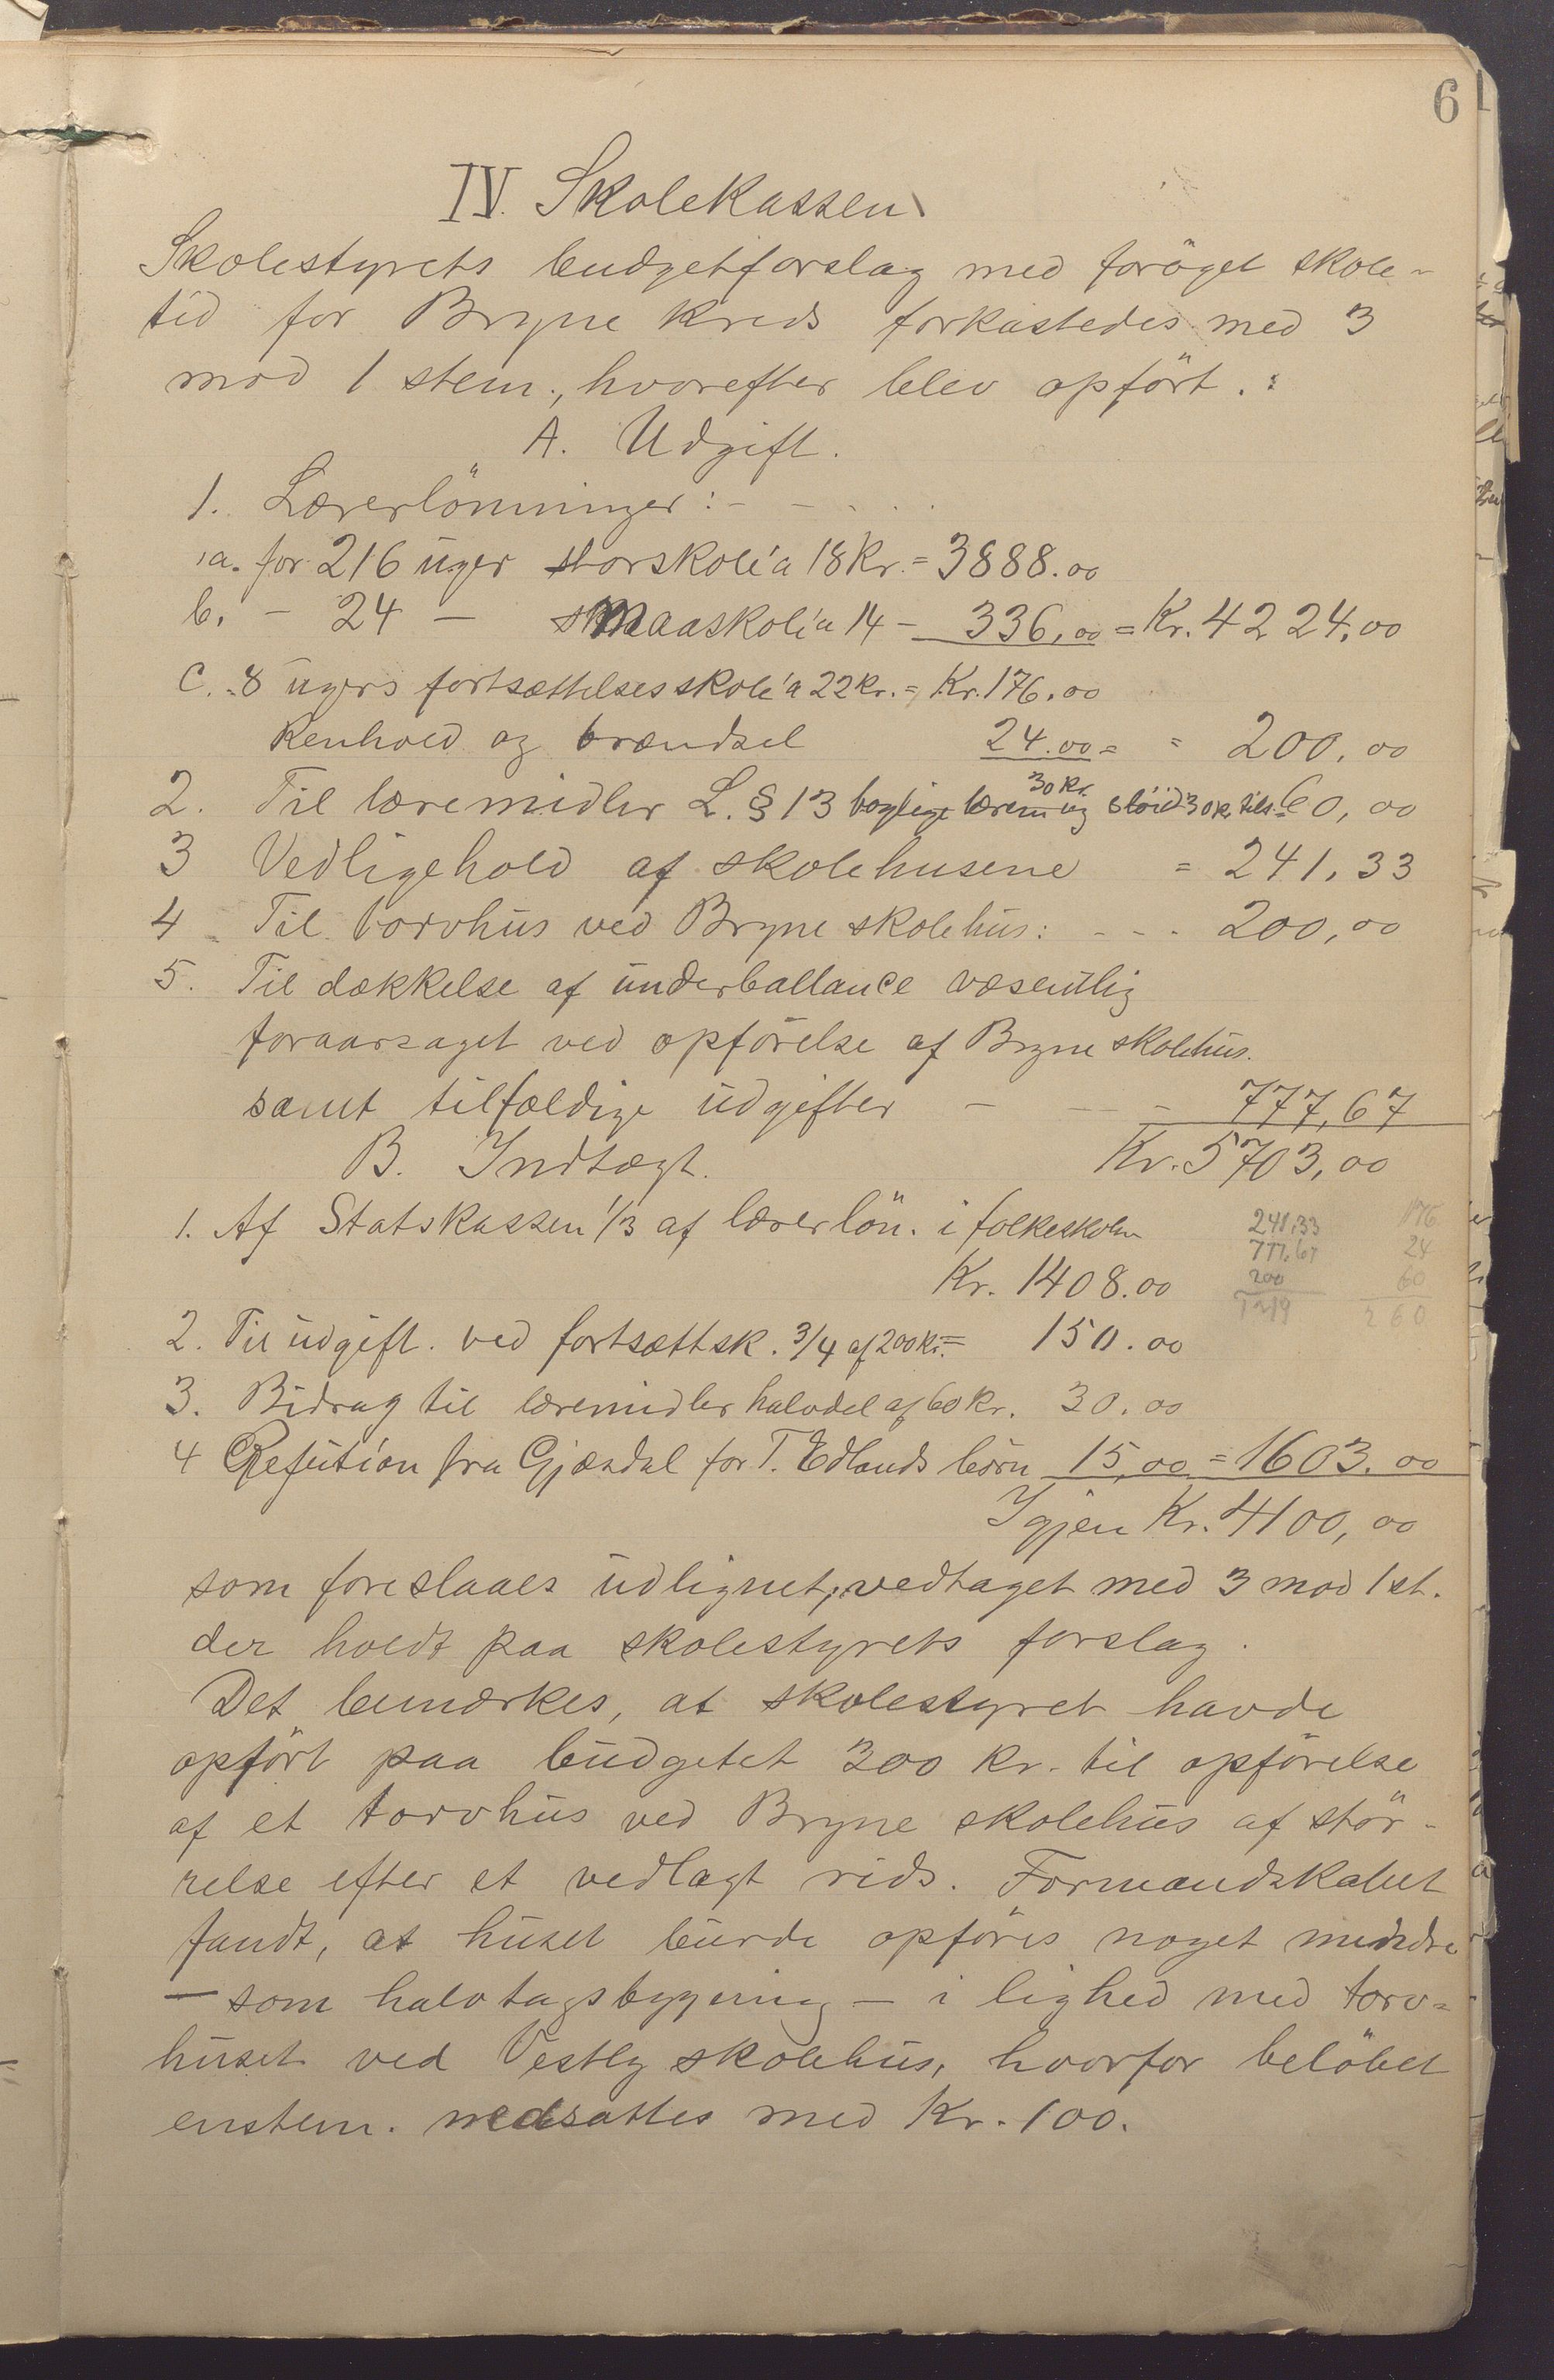 6
IV. Skolekassen
Skolestyrets budgetforslag med foröget skole-
tid for Bryne kreds forkastedes med 3
mod 1 stem., hvorefter blev opfört.:
A. Udgift.
1. Lærerlönninger: - - . . .
a. for 216 uger storskole á 18 Kr. = 3888.00
b. - 24 - smaaskole á 14 - 336,00 = Kr. 4224,00
C. 8 ugers fortsættelsesskole á 22 kr. = Kr. 176.00
Renhold og brændsel 24.00 = = 200,00
30 kr.
2. Til læremidler L. § 13 boglige lærem og slöid 30 kr. tils. = 60,00
3 Vedligehold af skolehusene = 241,33
4 Til torvhus ved Bryne skolehus: - - - 200,00
5. Til dækkelse af underballance væsentlig
foraarsaget ved opförelse af Bryne skolehus.
samt tilfældige udgifter - - - 777,67
B. Indtægt. Kr. 5703,00
1. Af Statskassen 1/3 af lærerlön. i folkeskolen
241,33 176
777,67 24
Kr. 1408.00 200 60
1219 260
2. Til udgift. ved fortsættsk. 3/4 af 200 kr. = 150.00
3. Bidrag til læremidler halvdel af 60 kr. 30.00
4 Refution fra Gjæsdal for T. Edlands börn 15,00 = 1603.00
Igjen Kr. 4100,00
som foreslaaes udlignet; vedtaget med 3 mod 1 st.
der holdt paa skolestyrets forslag.
Det bemærkes, at skolestyret havde
opfört paa budgetet 300 kr. til opförelse
af et torvhus ved Bryne skolehus af stör-
relse efter et vedlagt rids. Formandskabet
fandt, at huset burde opföres noget mindre
- som halvtagsbygning - i lighed med torv-
huset ved Vestly skolehus, hvorfor belöbet
enstem. nedsattes med Kr. 100.